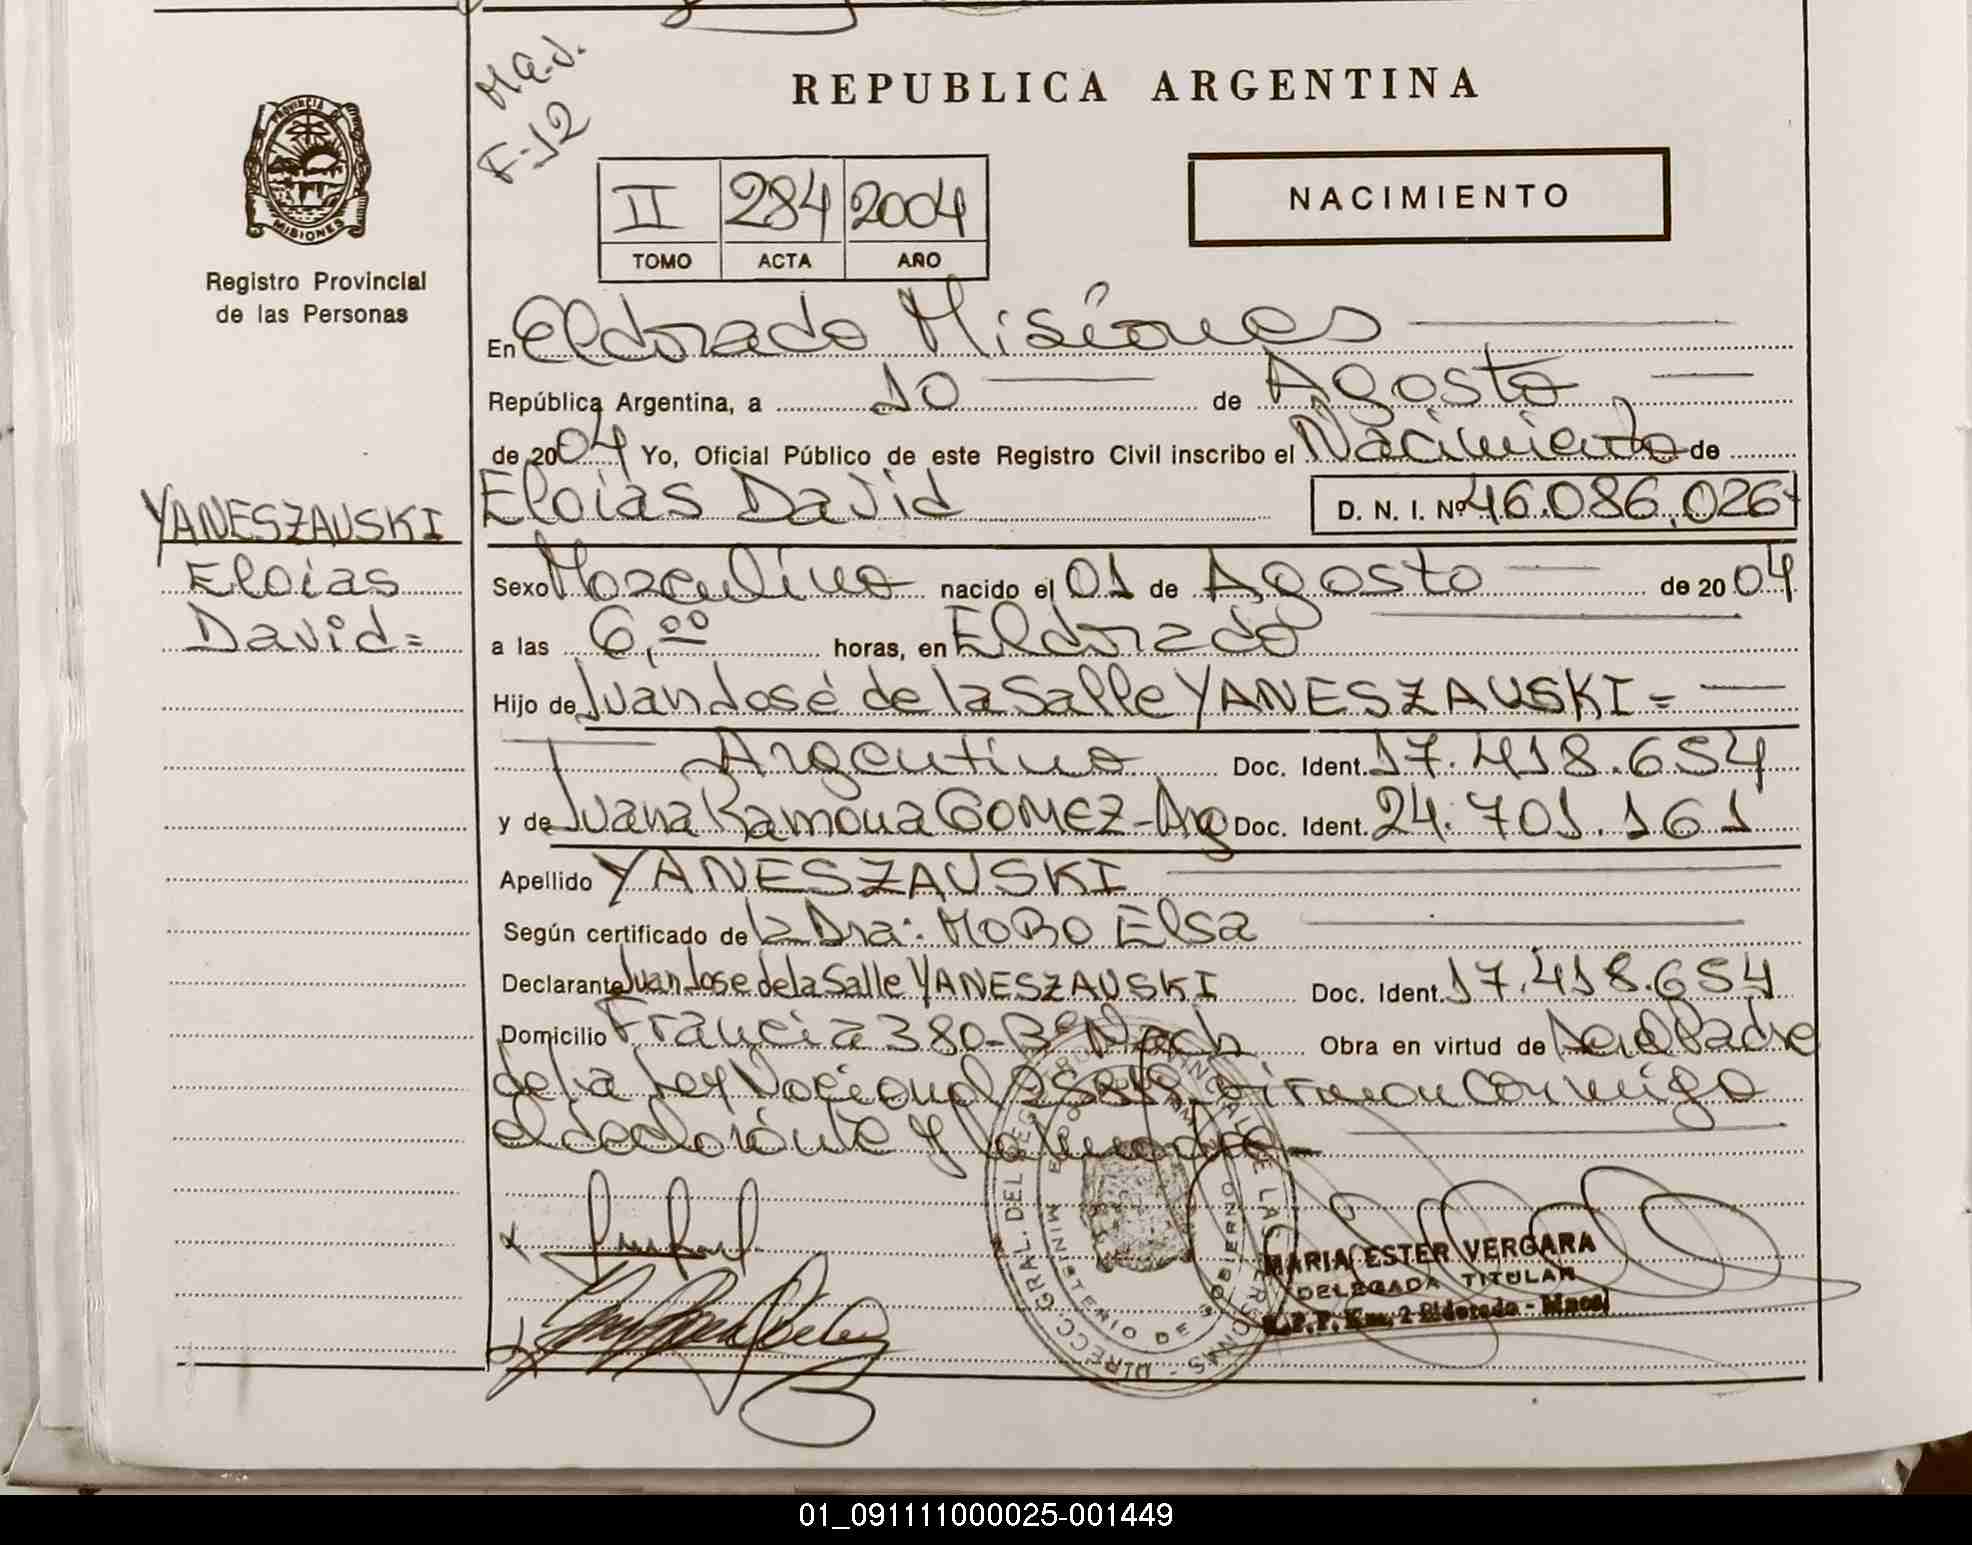 Mad.
F-12
REPUBLICA ARGENTINA
PROVINCIA
MISIONES
Registro Provincial
de las Personas
II 284 2004
TOMO ACTA AÑO
NACIMIENTO
En Eldorado Misiones
República Argentina, a 10 de Agosto
de 2004 Yo, Oficial Público de este Registro Civil inscribo el Nacimiento de
Eloias David D. N. I. Nº 46.086.026
YANESZAUSKI
Eloias
David =
Sexo Masculino nacido el 01 de Agosto de 2004
a las 6,00 horas, en Eldorado
Hijo de Juan José de la Salle YANESZAUSKI =
Argentino Doc. Ident. 17.418.654
y de Juana Ramona GOMEZ - Arg Doc. Ident. 24.701.161
Apellido YANESZAUSKI
Según certificado de la Dra: MORO Elsa
Declarante Juan Jose de la Salle YANESZAUSKI Doc. Ident. 17.418.654
Domicilio Francia 380 - Bº Obra en virtud de Ser el Padre
de la Ley Nacional firman conmigo
el declarante y la madre -
DIRECC. GRAL. DEL REG. PROVINCIAL DE LAS PERSONAS
MINISTERIO DE GOBIERNO
MARIA ESTER VERGARA
DELEGADA TITULAR
R.P.P. Km. 2 Eldorado - Mnes
01_091111000025-001449